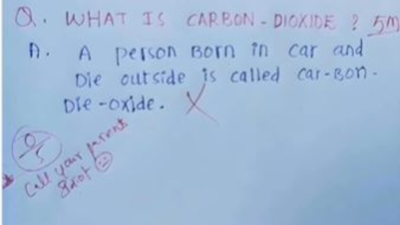 Q. WHAT IS CARBON-DIOXIDE ? 5M
A. A person Born in car and
Die outside is called car-Bon-
Die-oxide. X
0/5
Call your parent